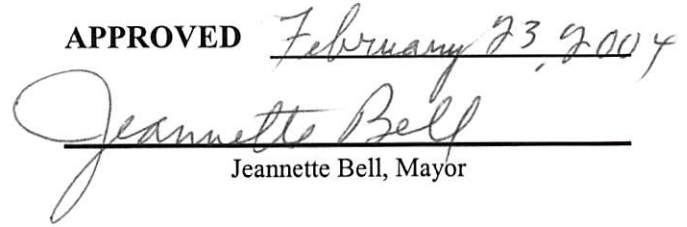 APPROVED February 23, 2004
Jeannette Bell
Jeannette Bell, Mayor